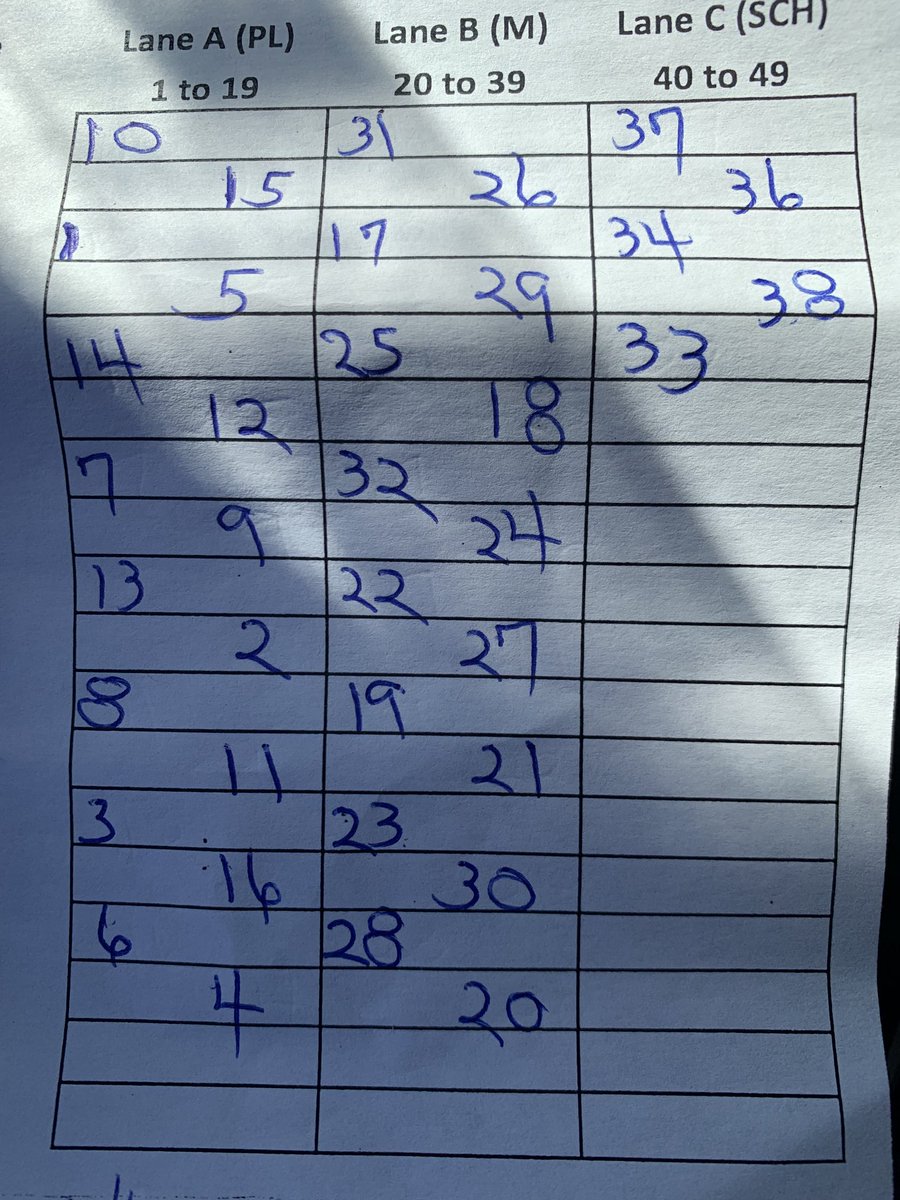 Lane A (PL) Lane B (M) Lane C (SCH)
1 to 19 20 to 39 40 to 49
10 31 37
15 26 36
1 17 34
5 29 38
14 25 33
12 18
7 32
9 24
13 22
2 27
8 19
11 21
3 23
16 30
6 28
4 20